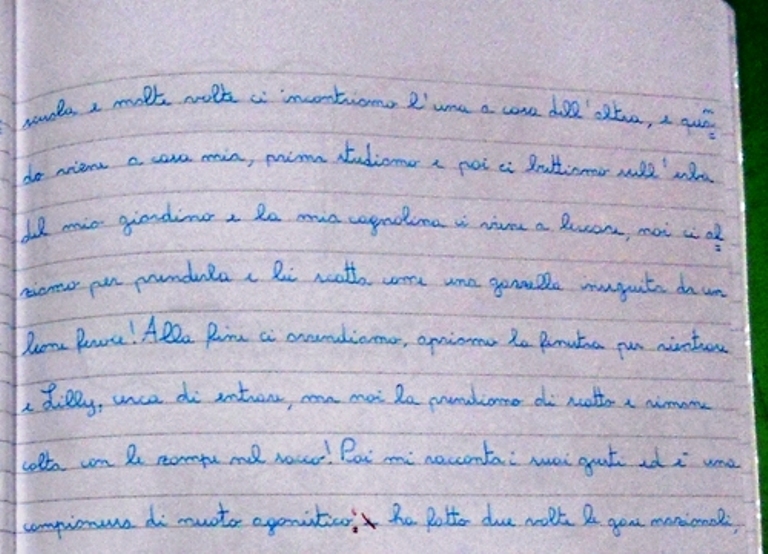 scuola e molte volte ci incontriamo l'una a casa dell'altra, e quan=
do viene a casa mia, prima studiamo e poi ci buttiamo sull'erba
del mio giardino e la mia cagnolina ci viene a leccare, noi ci al=
ziamo per prenderla e lei scatta come una gazzella inseguita da un
leone feroce! Alla fine ci arrendiamo, apriamo la finestra per rientrare
e Lilly, cerca di entrare, ma noi la prendiamo di scatto e rimane
colta con le zampe nel sacco! Poi mi racconta i suoi gusti ed è una
campionessa di nuoto agonistico: ha fatto due volte le gare nazionali,